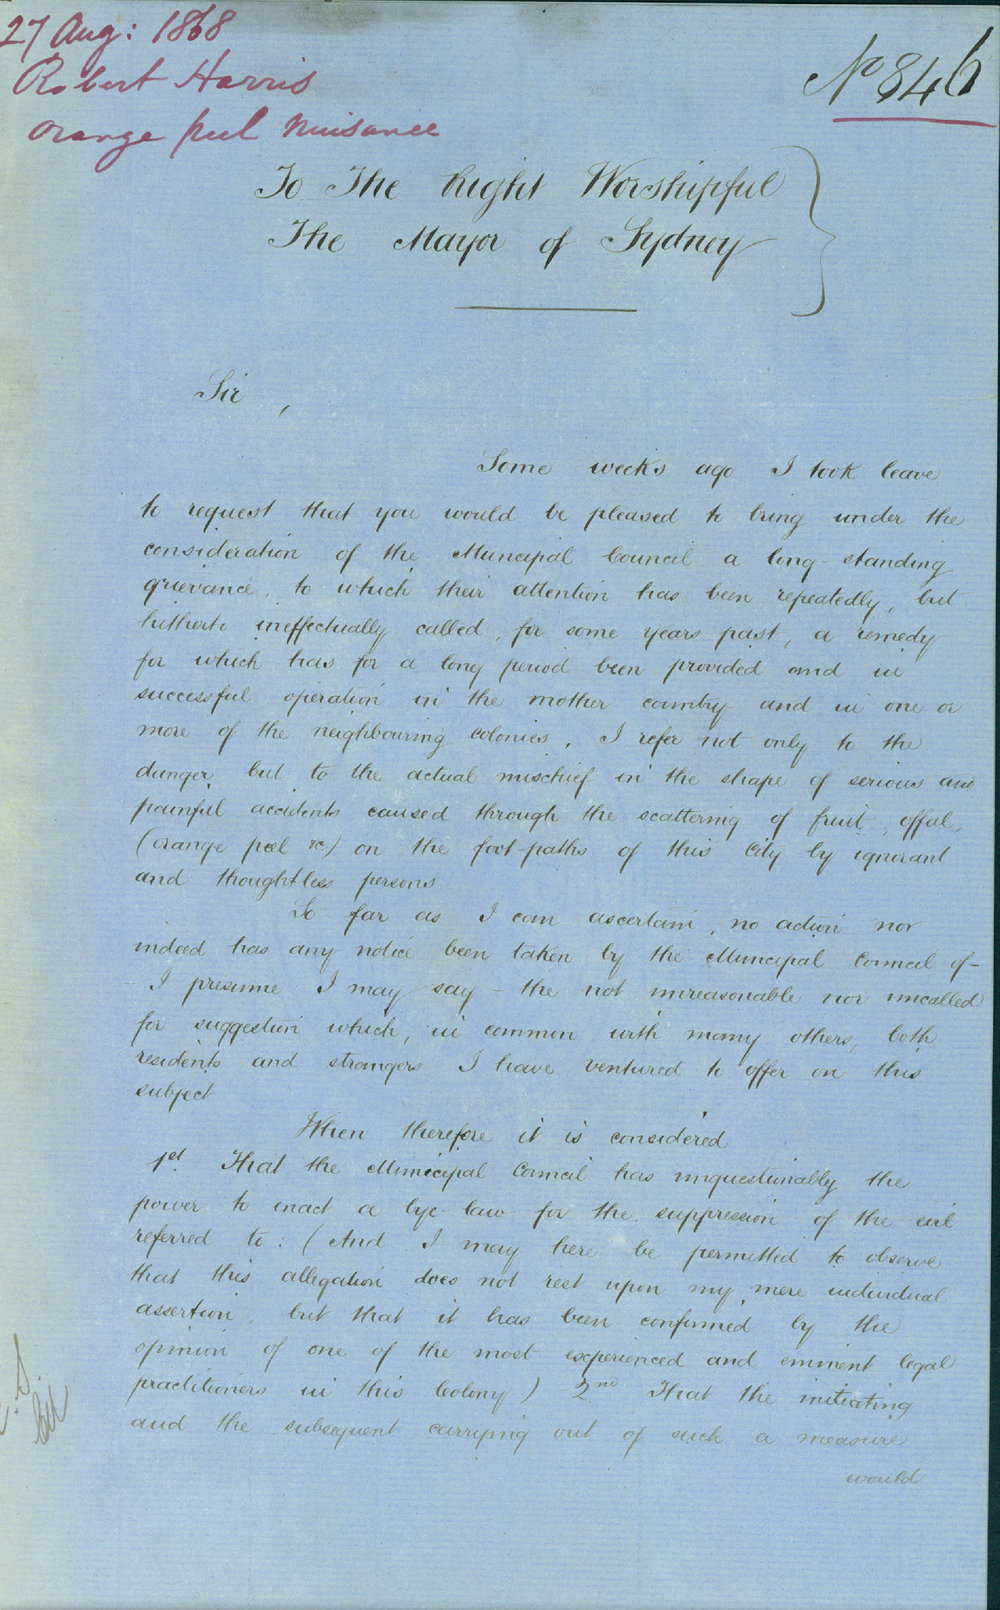 27 Aug: 1868
Robert Harris
Orange peel Nuisance
No 846
To The Right Worshipful
The Mayor of Sydney
Sir,
Some weeks ago I took leave
to request that you would be pleased to bring under the
consideration of the Municipal Council a long-standing
grievance, to which their attention has been repeatedly, but
hitherto ineffectually called, for some years past, a remedy
for which has for a long period been provided and in
successful operation in the mother country and in one or
more of the neighbouring colonies, I refer not only to the
danger, but to the actual mischief in the shape of serious and
painful accidents caused through the scattering of fruit, offal,
(orange peel &c) on the foot-paths of this City by ignorant
and thoughtless persons
So far as I can ascertain, no action nor
indeed has any notice been taken by the Municipal Council of-
I presume I may say - the not unreasonable nor uncalled
for suggestion which, in common with many others, both
residents and strangers I have ventured to offer on this
subject
When therefore it is considered
1st. That the Municipal Council has unquestionably the
power to enact a bye-law for the suppression of the evil
referred to: (And I may here be permitted to observe
that this allegation does not rest upon my mere individual
assertion, but that it has been confirmed by the
opinion of one of the most experienced and eminent legal
practitioners in this Colony) 2nd That the initiating
and the subsequent carrying out of such a measure
would